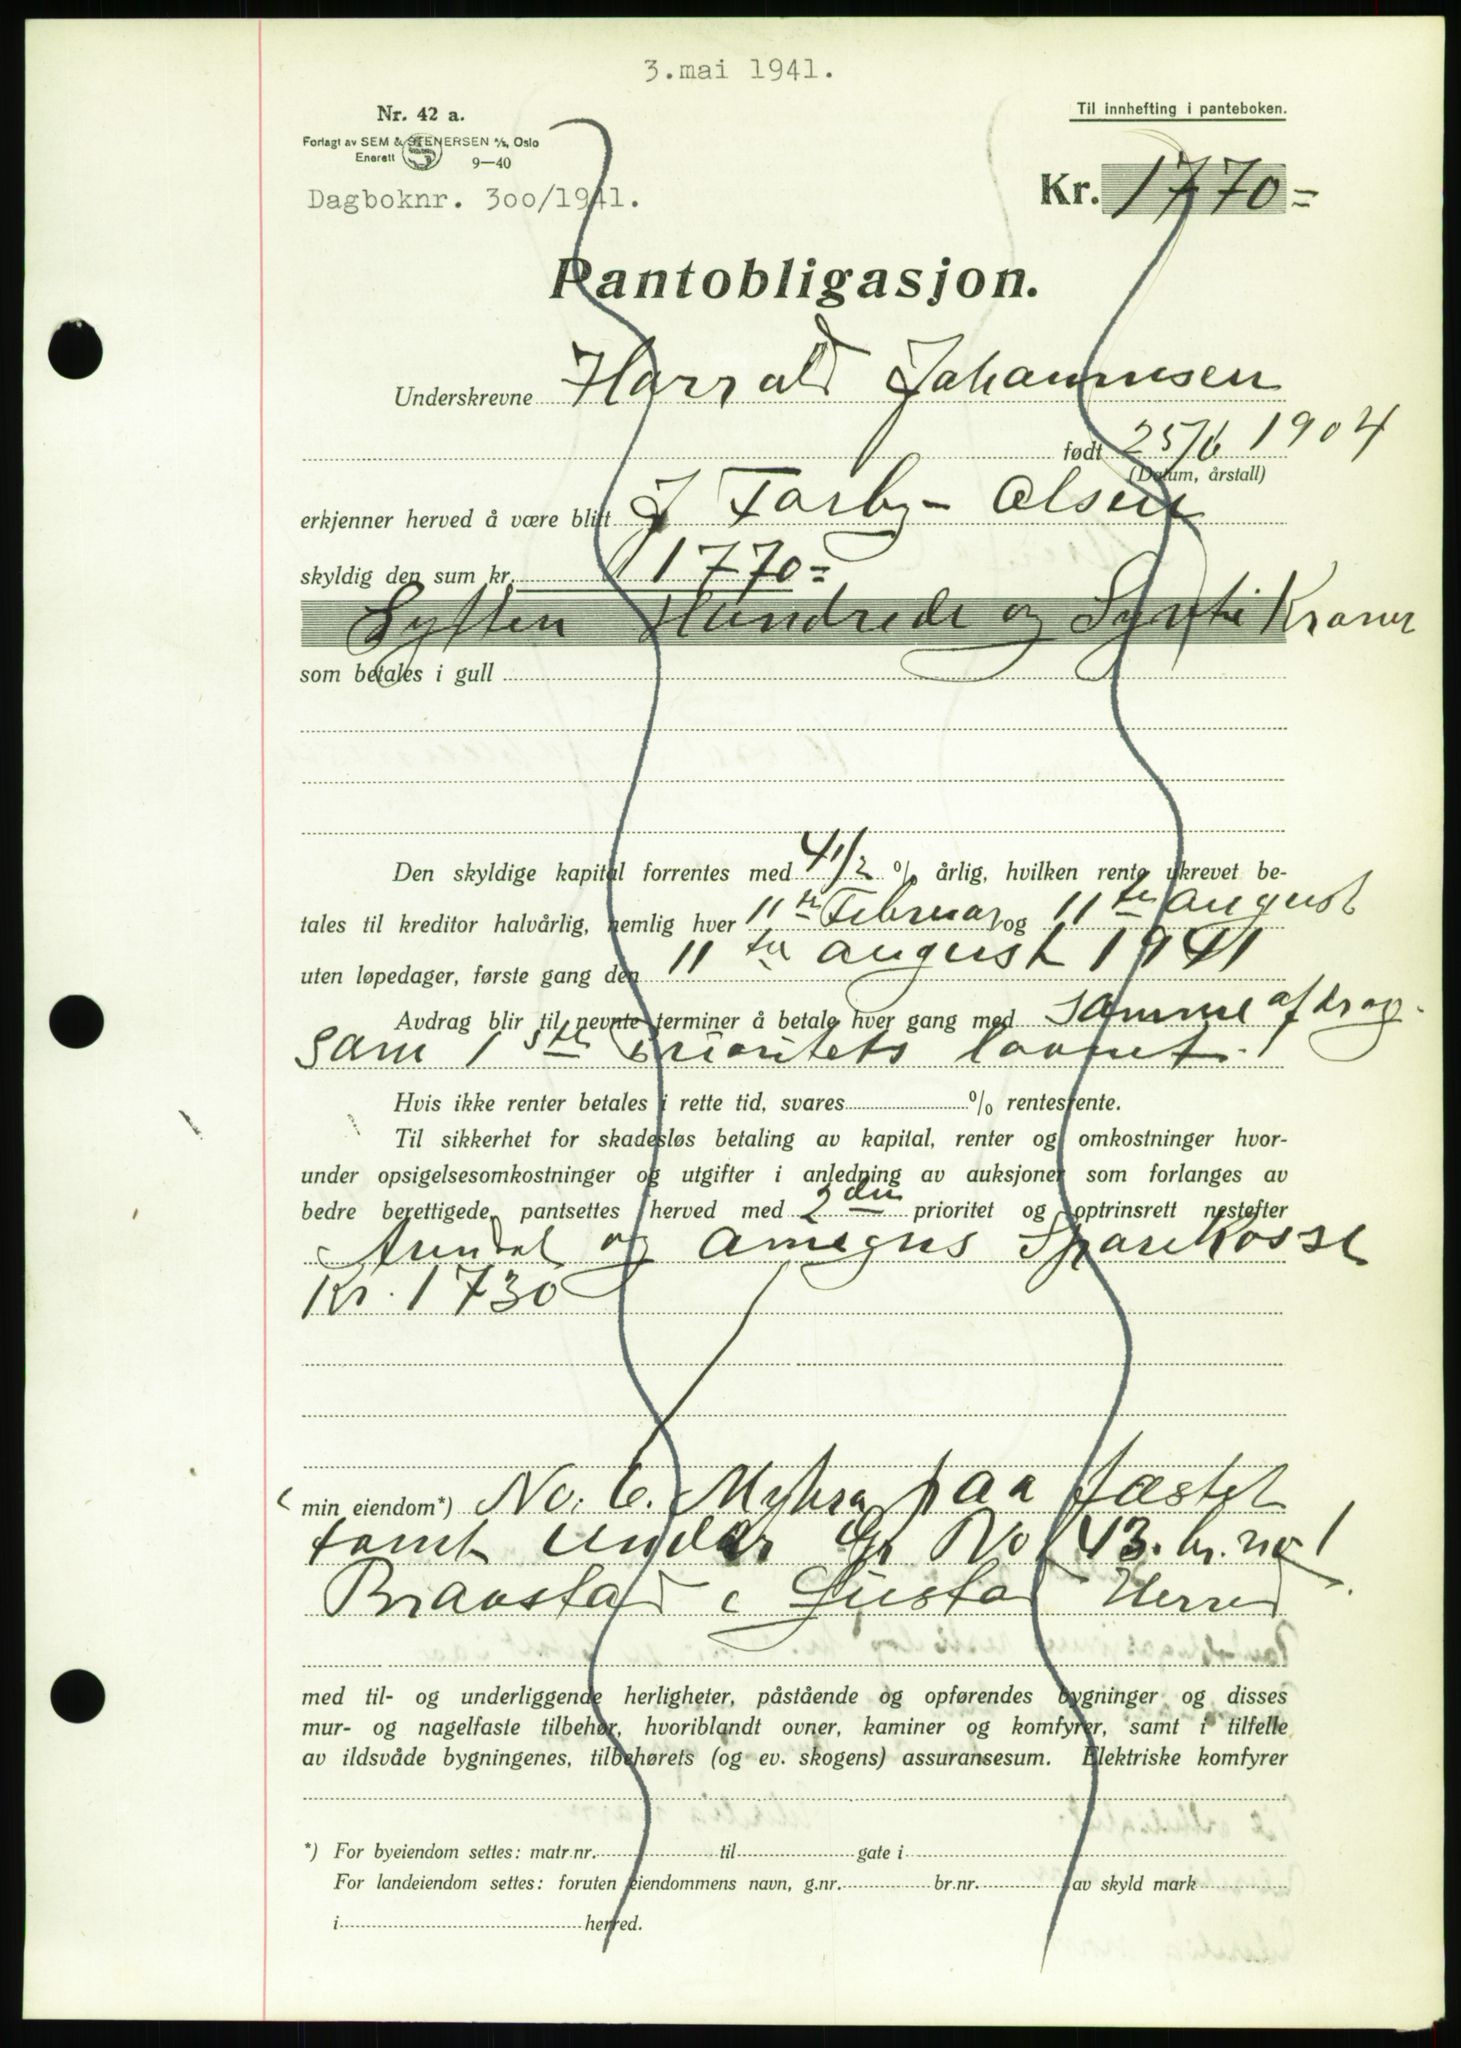 3. mai 1941.
Nr. 42 a.
Til innhefting i panteboken.
Forlagt av SEM & STENERSEN A/S, Oslo
Enerett 9—40
Kr. 1770=
Dagboknr. 300/1941.
Pantobligasjon.
Underskrevne Harrald Johannesen
født 25/6 1904
(Datum, årstall)
erkjenner herved å være blitt J Farby-Olsen
skyldig den sum kr. 1770=
Sytten Hundrede og Sytti Kroner
som betales i gull
Den skyldige kapital forrentes med 4 1/2 % årlig, hvilken rente ukrevet be-
tales til kreditor halvårlig, nemlig hver 11te Februar og 11te august
uten løpedager, første gang den 11te august 1941
Avdrag blir til nevnte terminer å betale hver gang med samme afdrag
som 1ste prioritets laanet.
Hvis ikke renter betales i rette tid, svares % rentesrente.
Til sikkerhet for skadesløs betaling av kapital, renter og omkostninger hvor-
under opsigelsesomkostninger og utgifter i anledning av auksjoner som forlanges av
bedre berettigede, pantsettes herved med 2den prioritet og optrinsrett nestefter
Arendal og Omegns Sparekasse
Kr. 1730
min eiendom*) No. 6. Myhra paa fæstet
tomt under Gr No 43. br. no 1
Braastad i Øiestad Herred.
med til- og underliggende herligheter, påstående og opførendes bygninger og disses
mur- og nagelfaste tilbehør, hvoriblandt ovner, kaminer og komfyrer, samt i tilfelle
av ildsvåde bygningenes, tilbehørets (og ev. skogens) assuransesum. Elektriske komfyrer
*) For byeiendom settes: matr.nr. til gate i
For landeiendom settes: foruten eiendommens navn, g.nr. br.nr. av skyld mark
i herred.